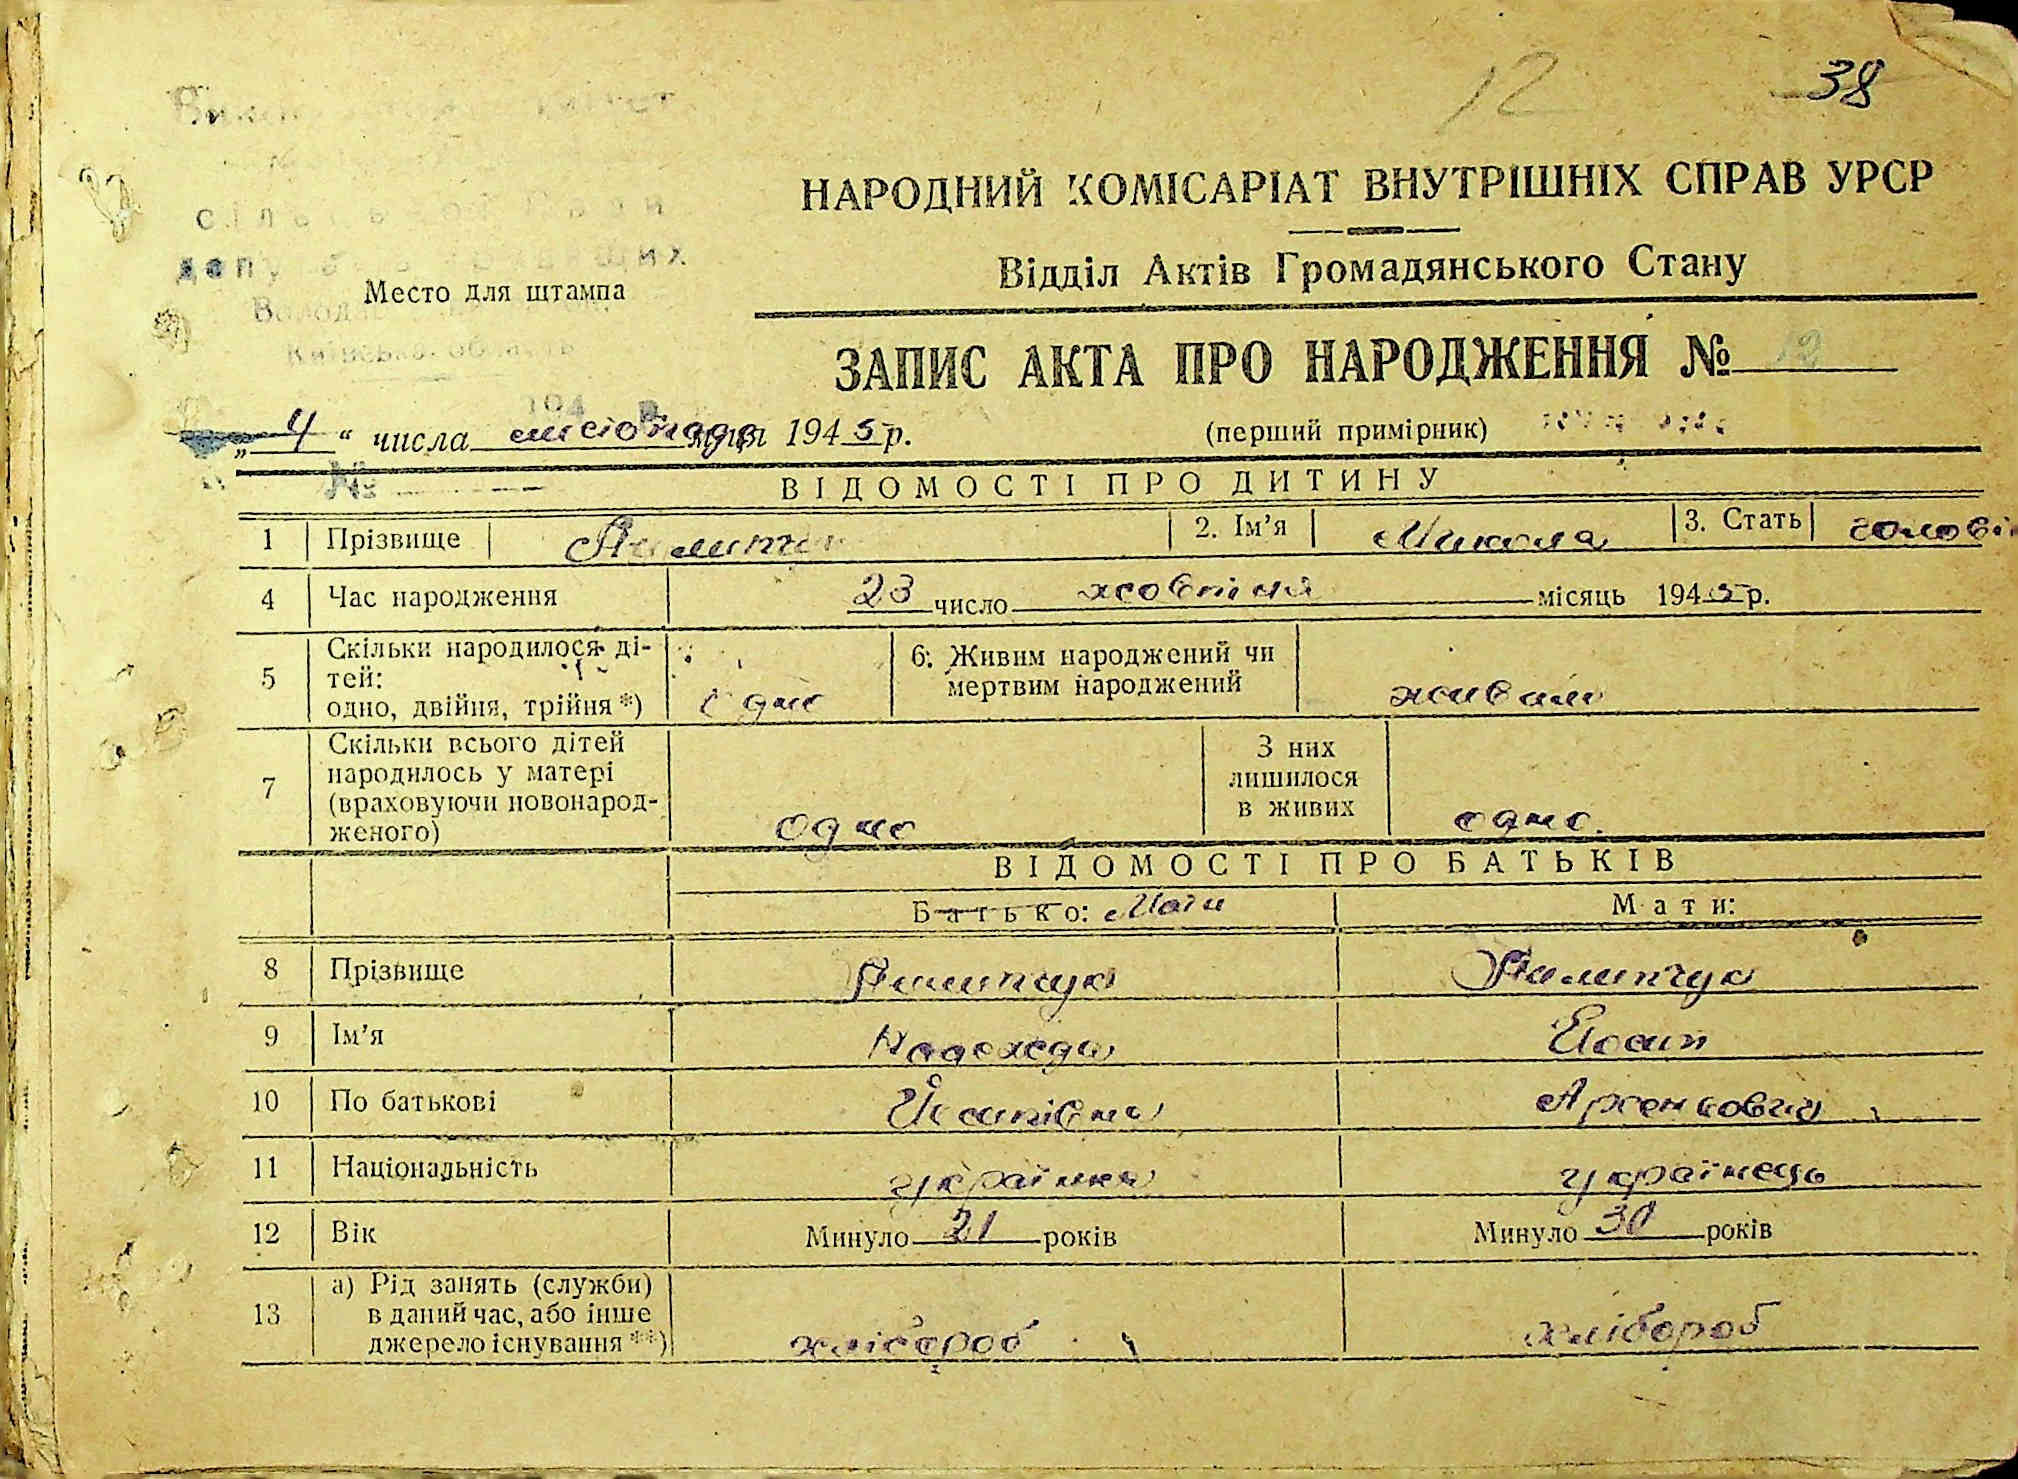 12 38
НАРОДНИЙ КОМІСАРІАТ ВНУТРІШНІХ СПРАВ УРСР
Відділ Актів Громадянського Стану
Место для штампа
Київська область
ЗАПИС АКТА ПРО НАРОДЖЕННЯ № 12
„ 4 “ числа листопада м-ця 1945 р. (перший примірник)
№
ВІДОМОСТІ ПРО ДИТИНУ
1 Прізвище 2. Ім’я Микола 3. Стать
4 Час народження 23 число жовтня місяць 1945 р.
5 Скільки народилося ді-
тей:
одно, двійня, трійня *) одно
6. Живим народжений чи
мертвим народжений живим
7 Скільки всього дітей
народилось у матері
(враховуючи новонарод-
женого) одно
З них
лишилося
в живих одно.
ВІДОМОСТІ ПРО БАТЬКІВ
Батько: Мати Мати:
8 Прізвище Пилипчук Пилипчук
9 Ім’я Надежда Йосип
10 По батькові Йосипівна
11 Національність українка українець
12 Вік Минуло 21 років Минуло 30 років
13 а) Рід занять (служби)
в даний час, або інше
джерело існування **) хлібороб хлібороб